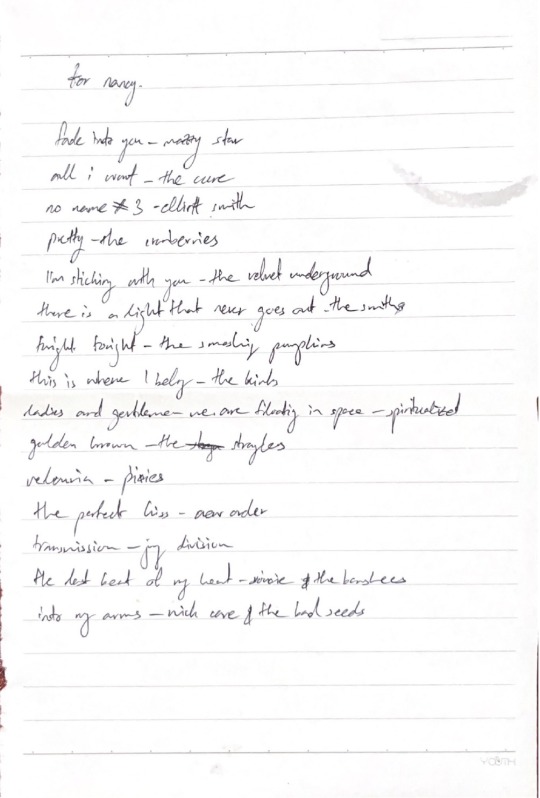 for nancy.
fade into you - mazzy star
all i want - the cure
no name #3 - elliott smith
pretty - the cranberries
I'm sticking with you - the velvet underground
there is a light that never goes out - the smiths
tonight tonight - the smashing pumpkins
this is where I belong - the kinks
ladies and gentlemen we are floating in space - spiritualized
golden brown - the strangles
velouria - pixies
the perfect kiss - new order
transmission - joy division
the last beat of my heart - siouxsie & the banshees
into my arms - nick cave & the bad seeds
YOUTH